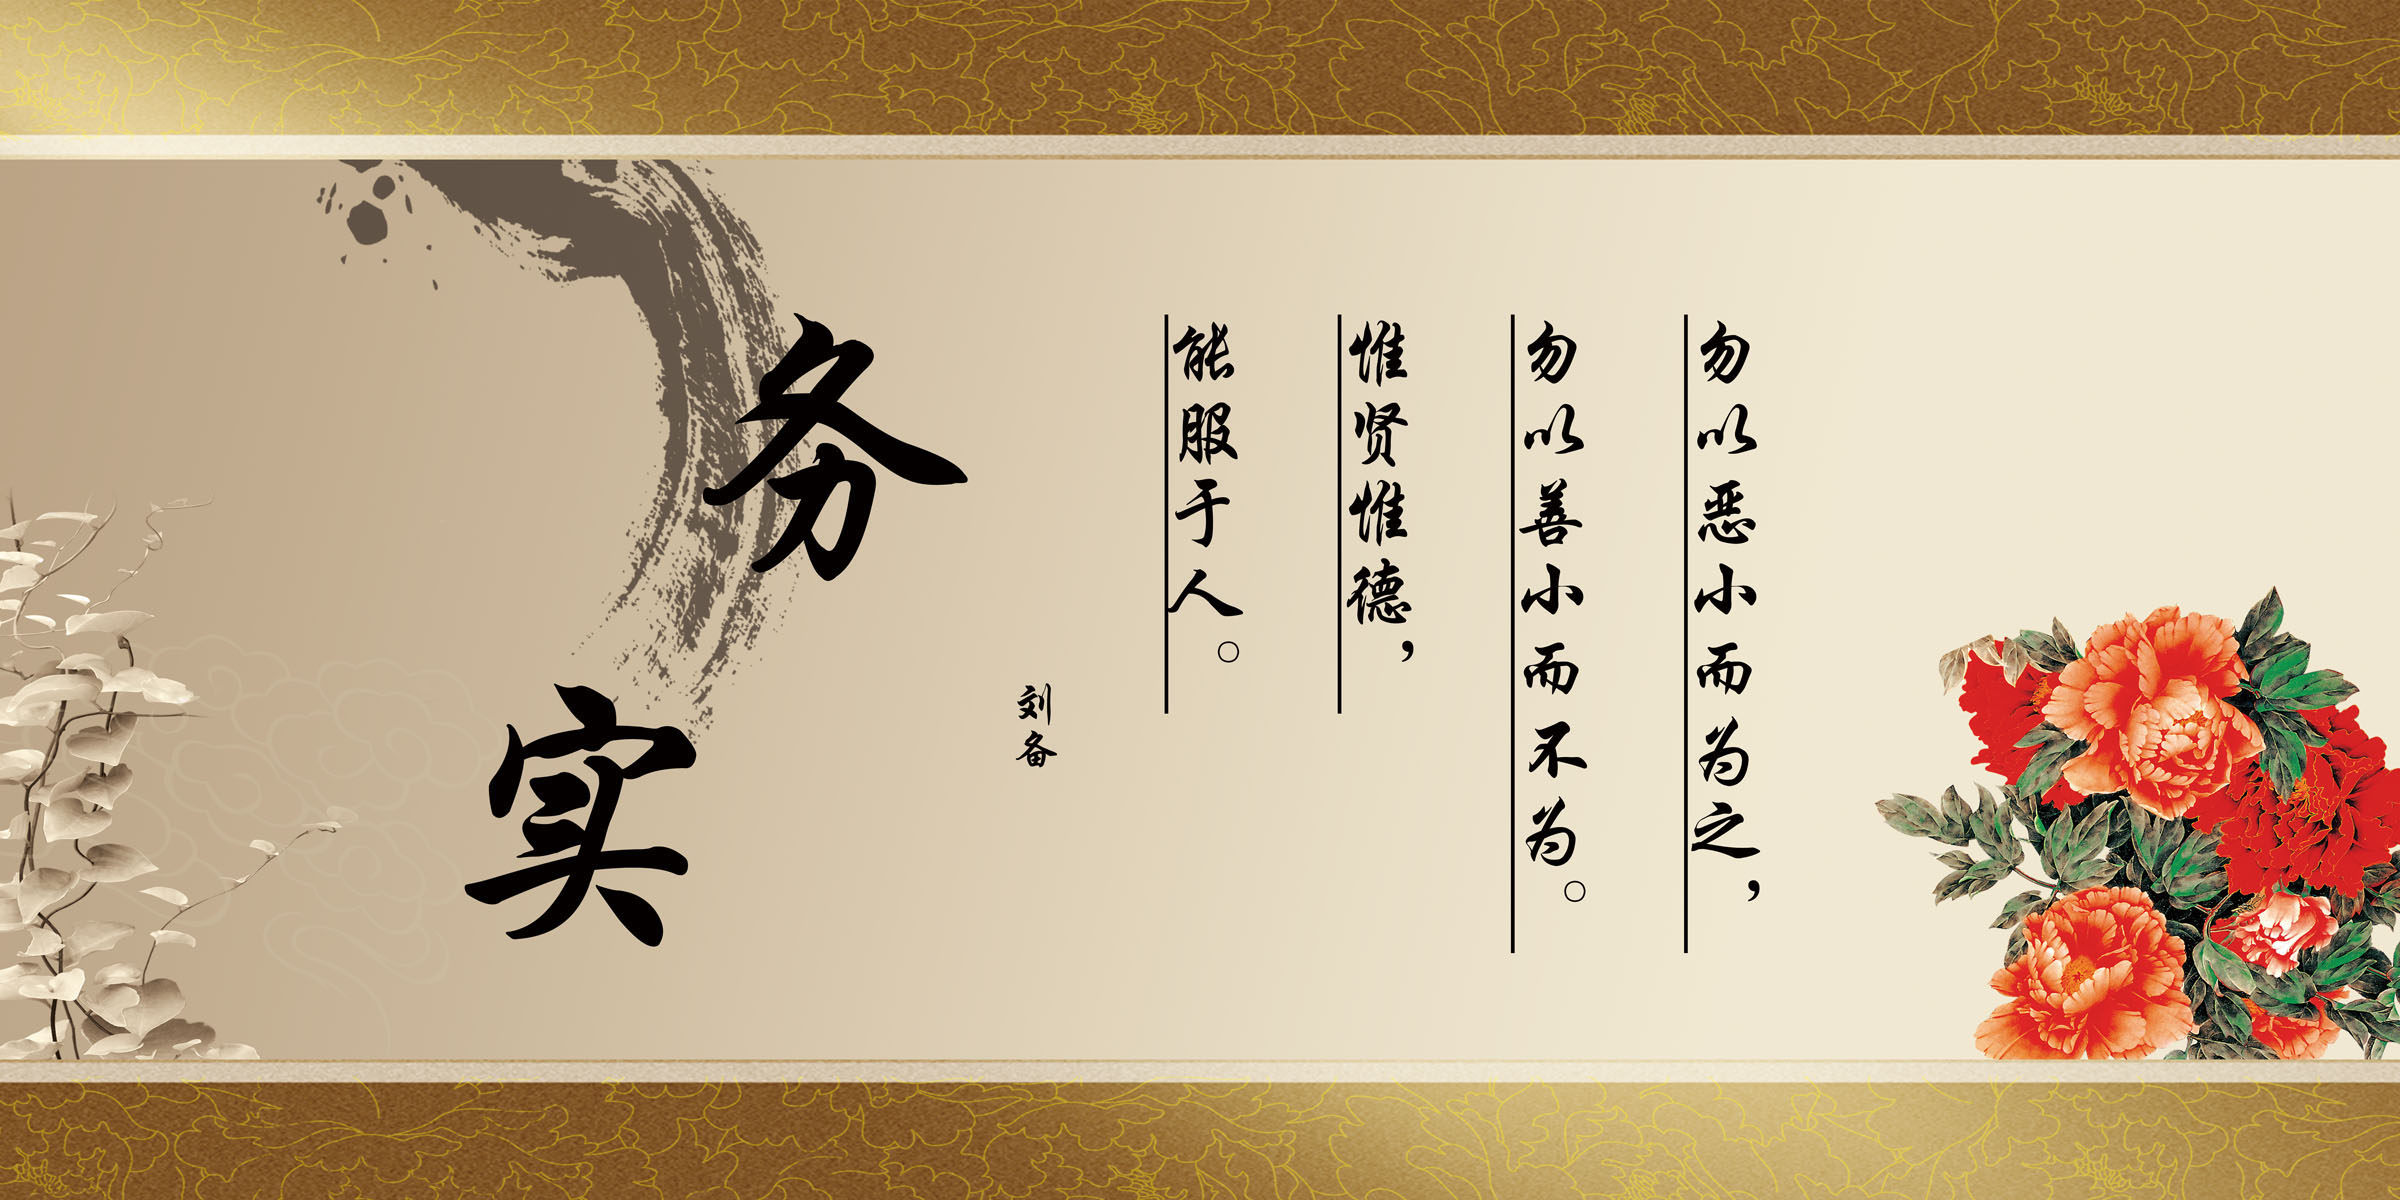 勿以恶小而为之，
勿以善小而不为。
惟贤惟德，
能服于人。
刘备
务实